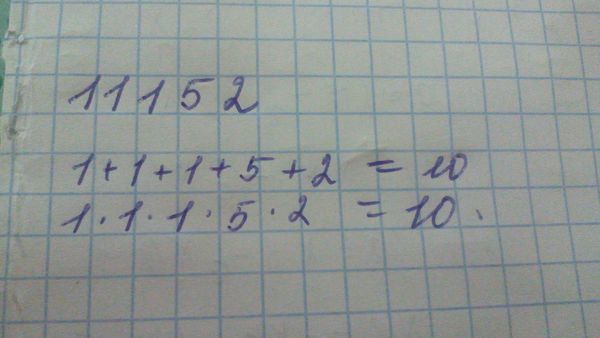 11152
1+1+1+5+2 = 10
1·1·1·5·2 = 10.